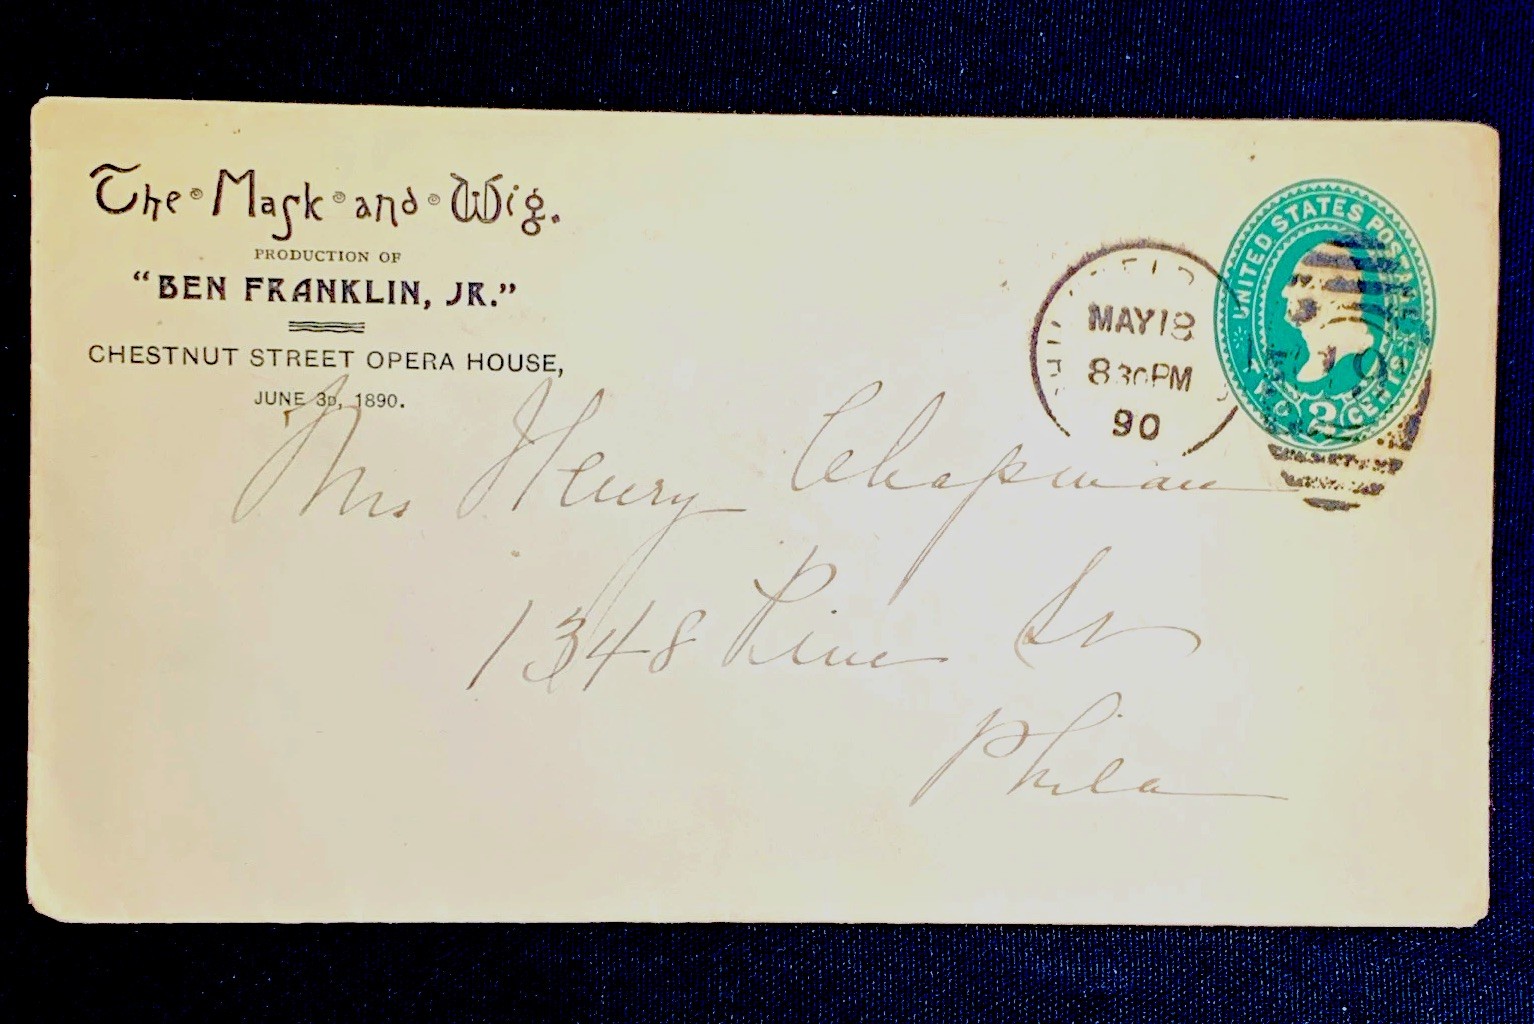 The Mask and Wig.
PRODUCTION OF
"BEN FRANKLIN, JR."
CHESTNUT STREET OPERA HOUSE,
JUNE 3D, 1890.
UNITED STATES POSTAGE
TWO 2 CENTS
MAY 18
830PM
90
Mrs Henry Chapman
1348 Pine St
Phila